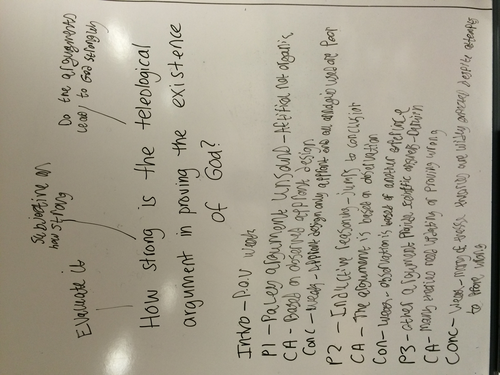 Evaluate it
Substantive on
how strong
Do the arguments
lead to God strongly
How strong is the teleological
argument in proving the existence
of God?
Intro - P.O.V weak
P1 - Paleys argument unsound - not organic
CA - Based on observed apparent design
Conc - Weak - apparent design only apparent and an analogies weak are Poor
P2 - Inductive Reasoning - Jumps to conclusion
CA - The argument is based on observation
Con - Weak - observation is based of another
P3 - other argument Scientific answers - Darwin
CA - Many theories need validity of Proving wrong
Conc - Weak - many of these theories are widely despite attempts
to prove wrong